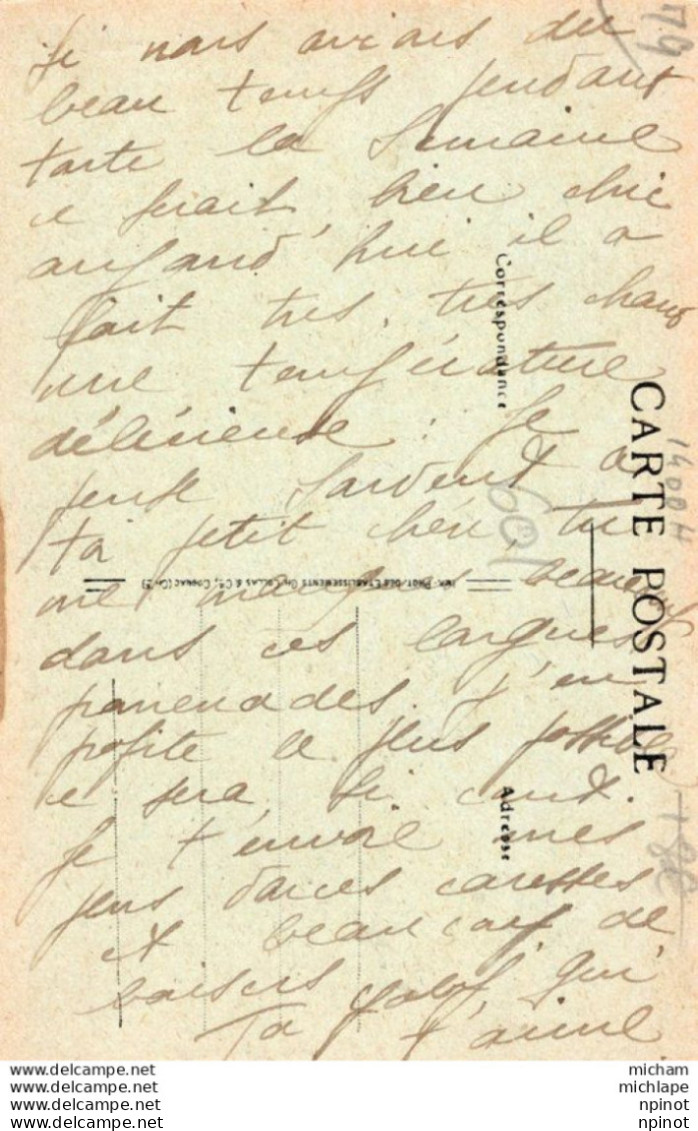 Si nous avions du
beau temps pendant
toute la semaine
ce serait bien chic
aujourd'hui il a
fait très, très chaud
une température
délicieuse. Je
pense souvent à
ta petit chéri, tu
me manques beaucoup
dans ces longues
promenades. J'en
profite le plus possible
ce sera si court.
Je t'envoie mes
plus douces caresses
et beaucoup de
baisers
Ta qui
t'aime
CARTE POSTALE
Correspondance
Adresse
IMP. PHOT. DES ETABLISSEMENTS Dr. COLLAS & Cie, COGNAC (Ch. 2)
79
601
www.delcampe.net micham
www.delcampe.net michlape
www.delcampe.net npinot
www.delcampe.net npinot